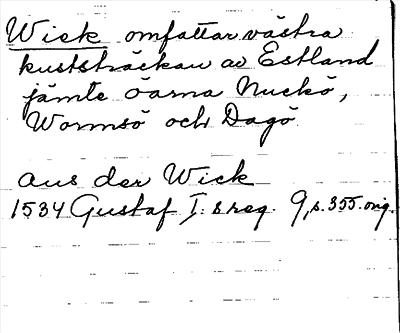 Wick omfattar västra
kuststräckan av Estland
jämte öarna Nuckö,
Wormsö och Dagö.
aus der Wick
1534 Gustaf I:s reg. 9, s. 355. orig.